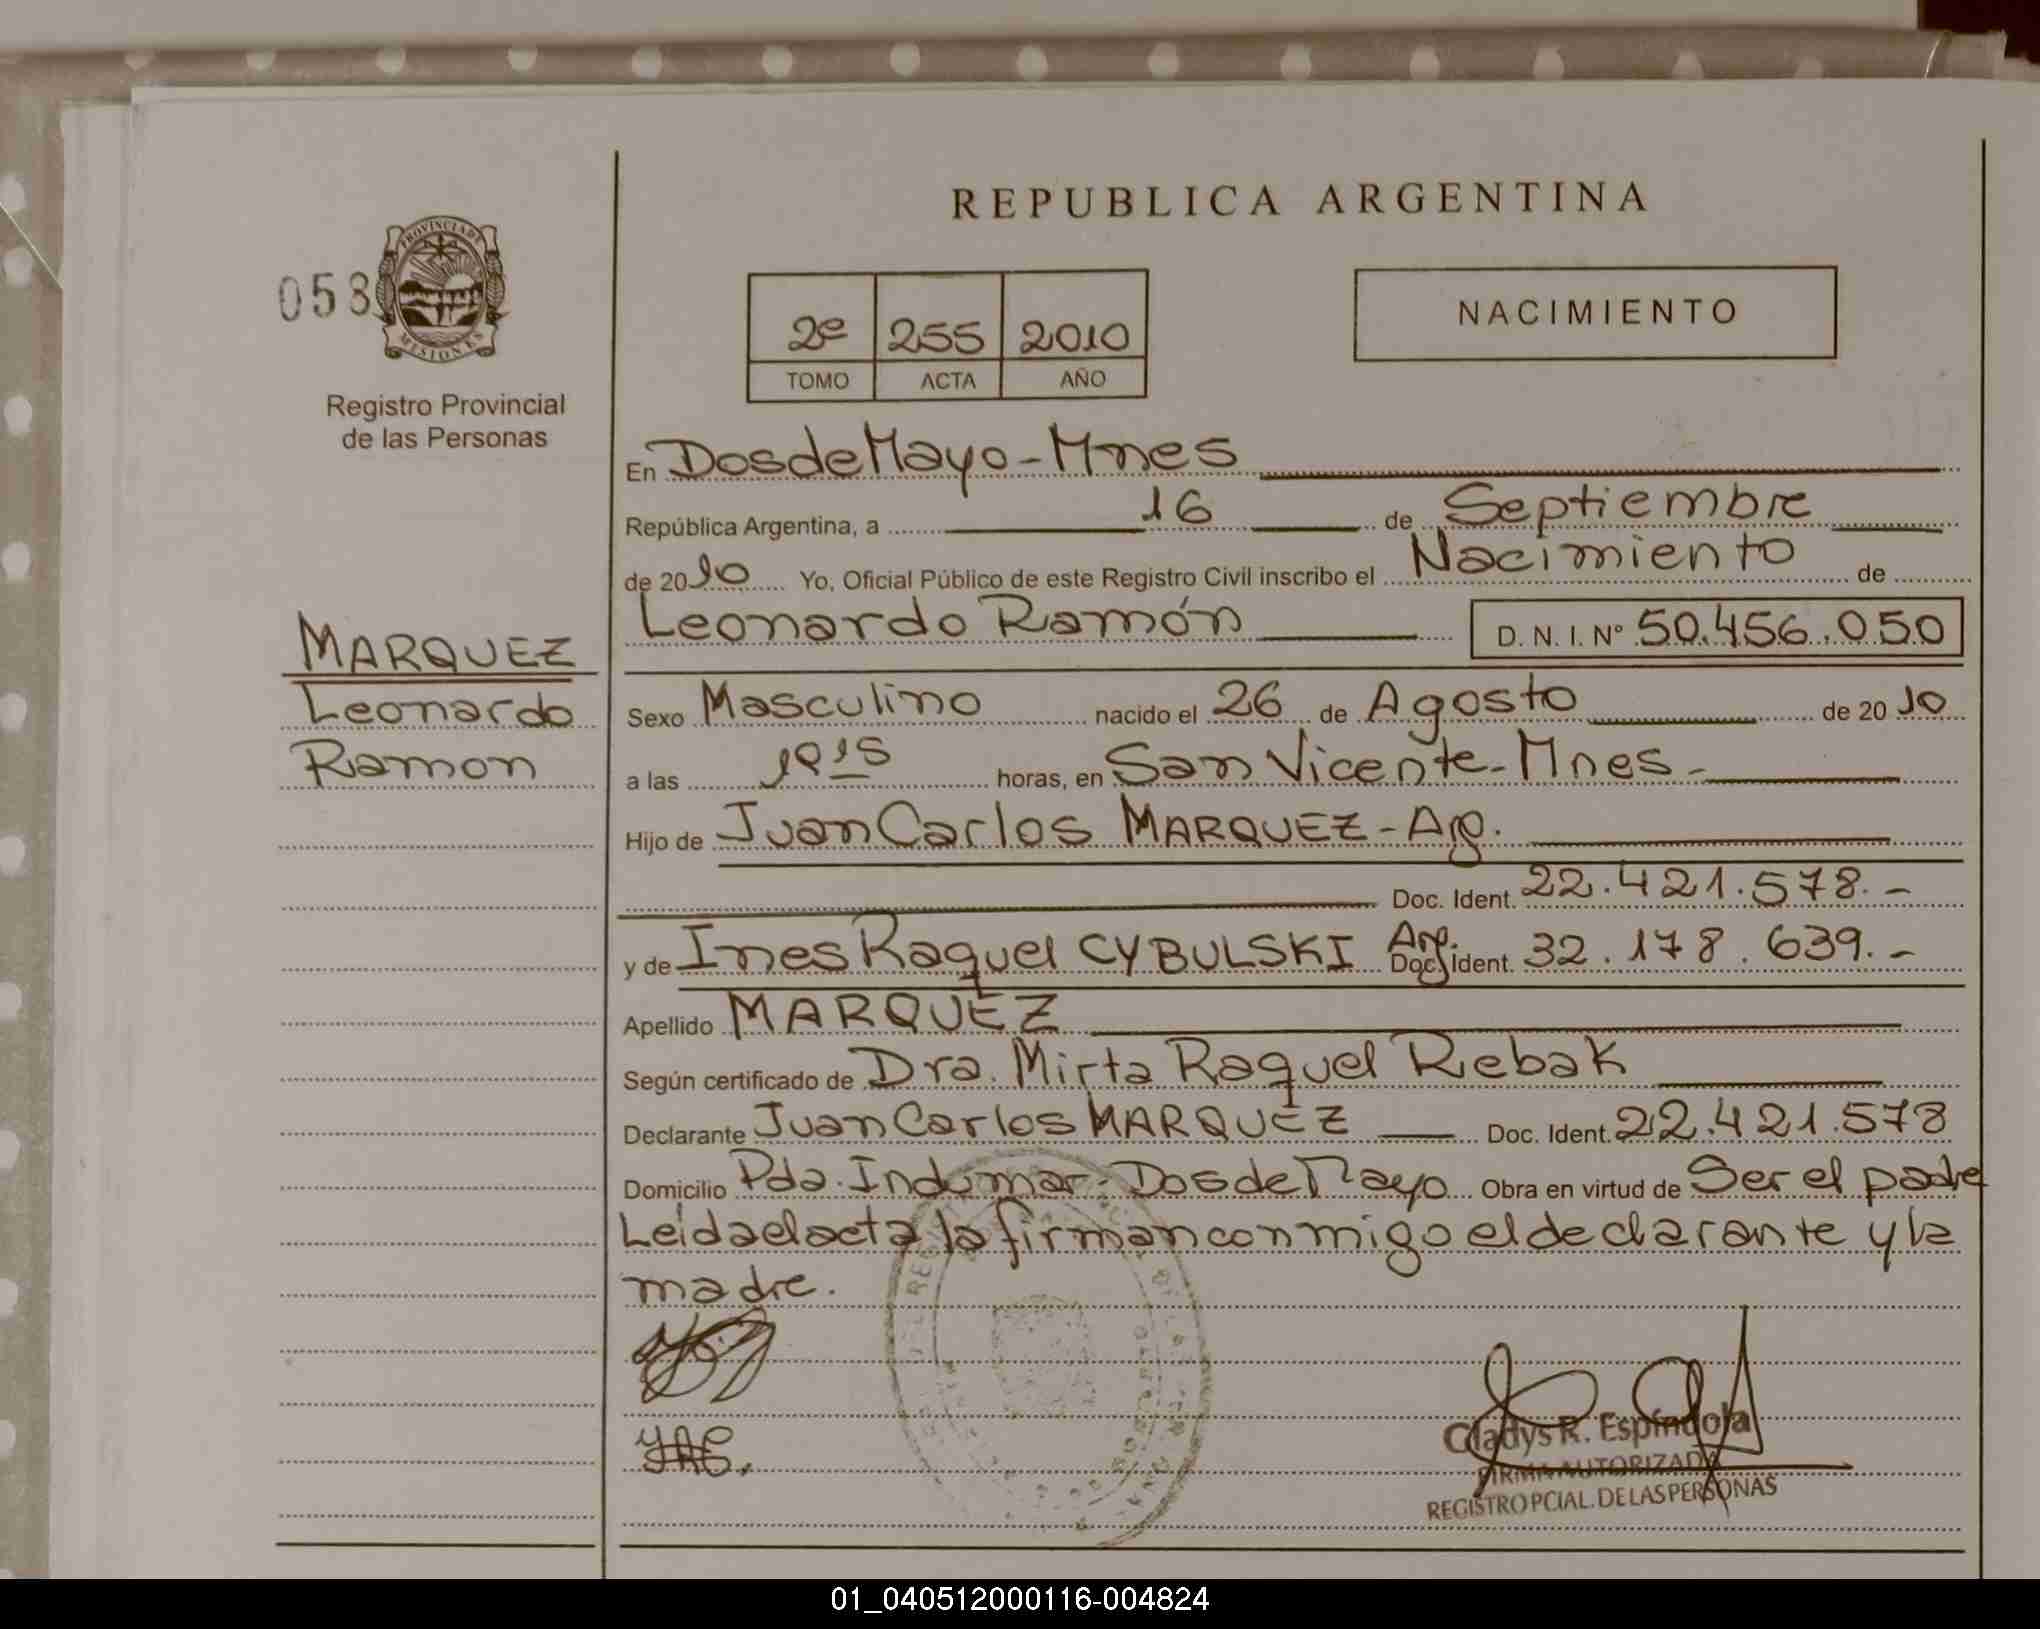 REPUBLICA ARGENTINA
058
PROVINCIA DE
MISIONES
Registro Provincial
de las Personas
2º 255 2010
TOMO ACTA AÑO
NACIMIENTO
En Dos de Mayo - Mnes
República Argentina, a 16 de Septiembre
de 2010 Yo, Oficial Público de este Registro Civil inscribo el Nacimiento de
Leonardo Ramón D. N. I. Nº 50.456.050
MARQUEZ
Leonardo
Ramon
Sexo Masculino nacido el 26 de Agosto de 2010
a las horas, en San Vicente - Mnes -
Hijo de Juan Carlos MARQUEZ - Arg.
Doc. Ident. 22.421.578.-
y de Ines Raquel CYBULSKI Arg. Doc. Ident. 32.178.639.-
Apellido MARQUEZ
Según certificado de Dra. Mirta Raquel Rebak
Declarante Juan Carlos MARQUEZ Doc. Ident. 22.421.578
Domicilio Pda. Indumar - Dos de Mayo Obra en virtud de Ser el padre
Leida el acta la firman conmigo el declarante y la
madre.
Gladys R. Espíndola
FIRMA AUTORIZADA
REGISTRO PCIAL. DE LAS PERSONAS
01_040512000116-004824